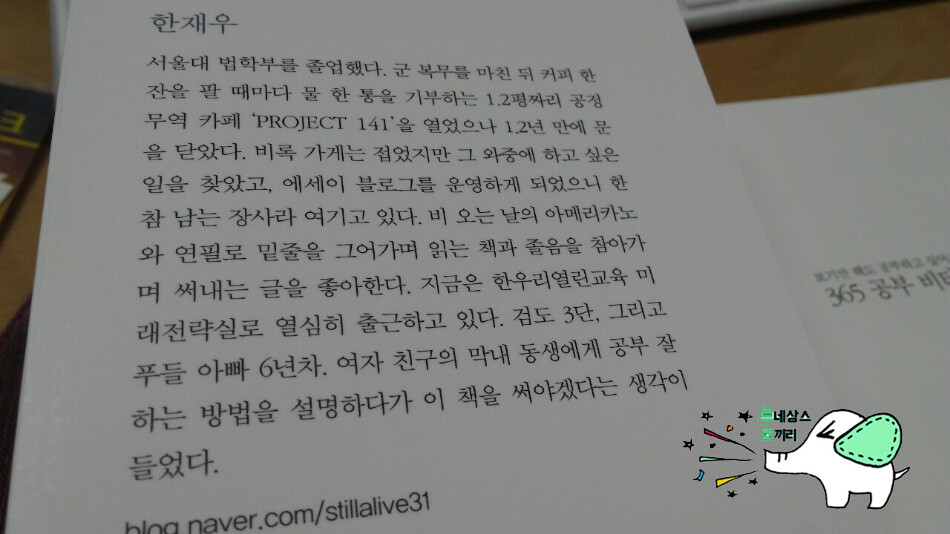 한재우
서울대 법학부를 졸업했다. 군 복무를 마친 뒤 커피 한
잔을 팔 때마다 물 한 통을 기부하는 1.2평짜리 공정
무역 카페 'PROJECT 141'을 열었으나 1.2년 만에 문
을 닫았다. 비록 가게는 접었지만 그 와중에 하고 싶은
일을 찾았고, 에세이 블로그를 운영하게 되었으니 한
참 남는 장사라 여기고 있다. 비 오는 날의 아메리카노
와 연필로 밑줄을 그어가며 읽는 책과 졸음을 참아가
며 써내는 글을 좋아한다. 지금은 한우리열린교육 미
래전략실로 열심히 출근하고 있다. 검도 3단, 그리고
푸들 아빠 6년차. 여자 친구의 막내 동생에게 공부 잘
하는 방법을 설명하다가 이 책을 써야겠다는 생각이
들었다.
blog.naver.com/stillalive31
365 공부
르네상스
코끼리